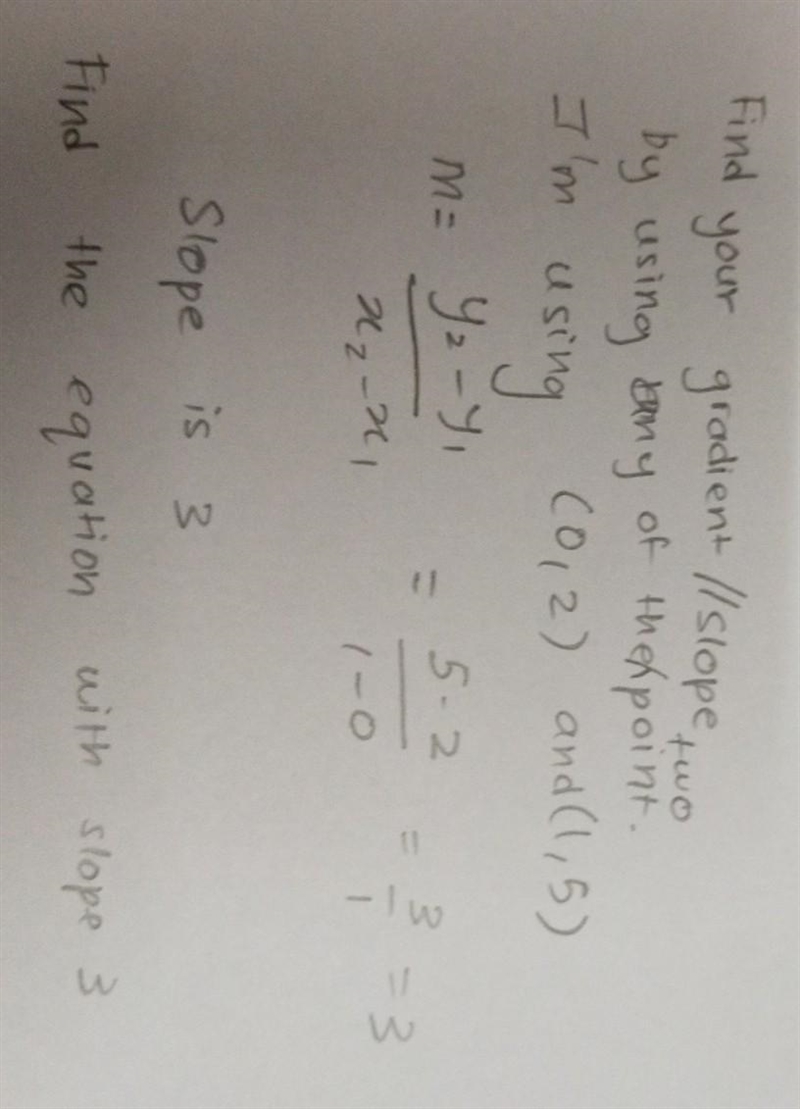 Find your gradient //slope
by using any of the two point.
I'm using (0,2) and (1,5)
m = y₂ - y₁ / x₂ - x₁ = 5 - 2 / 1 - 0 = 3/1 = 3
Slope is 3
Find the equation with slope 3